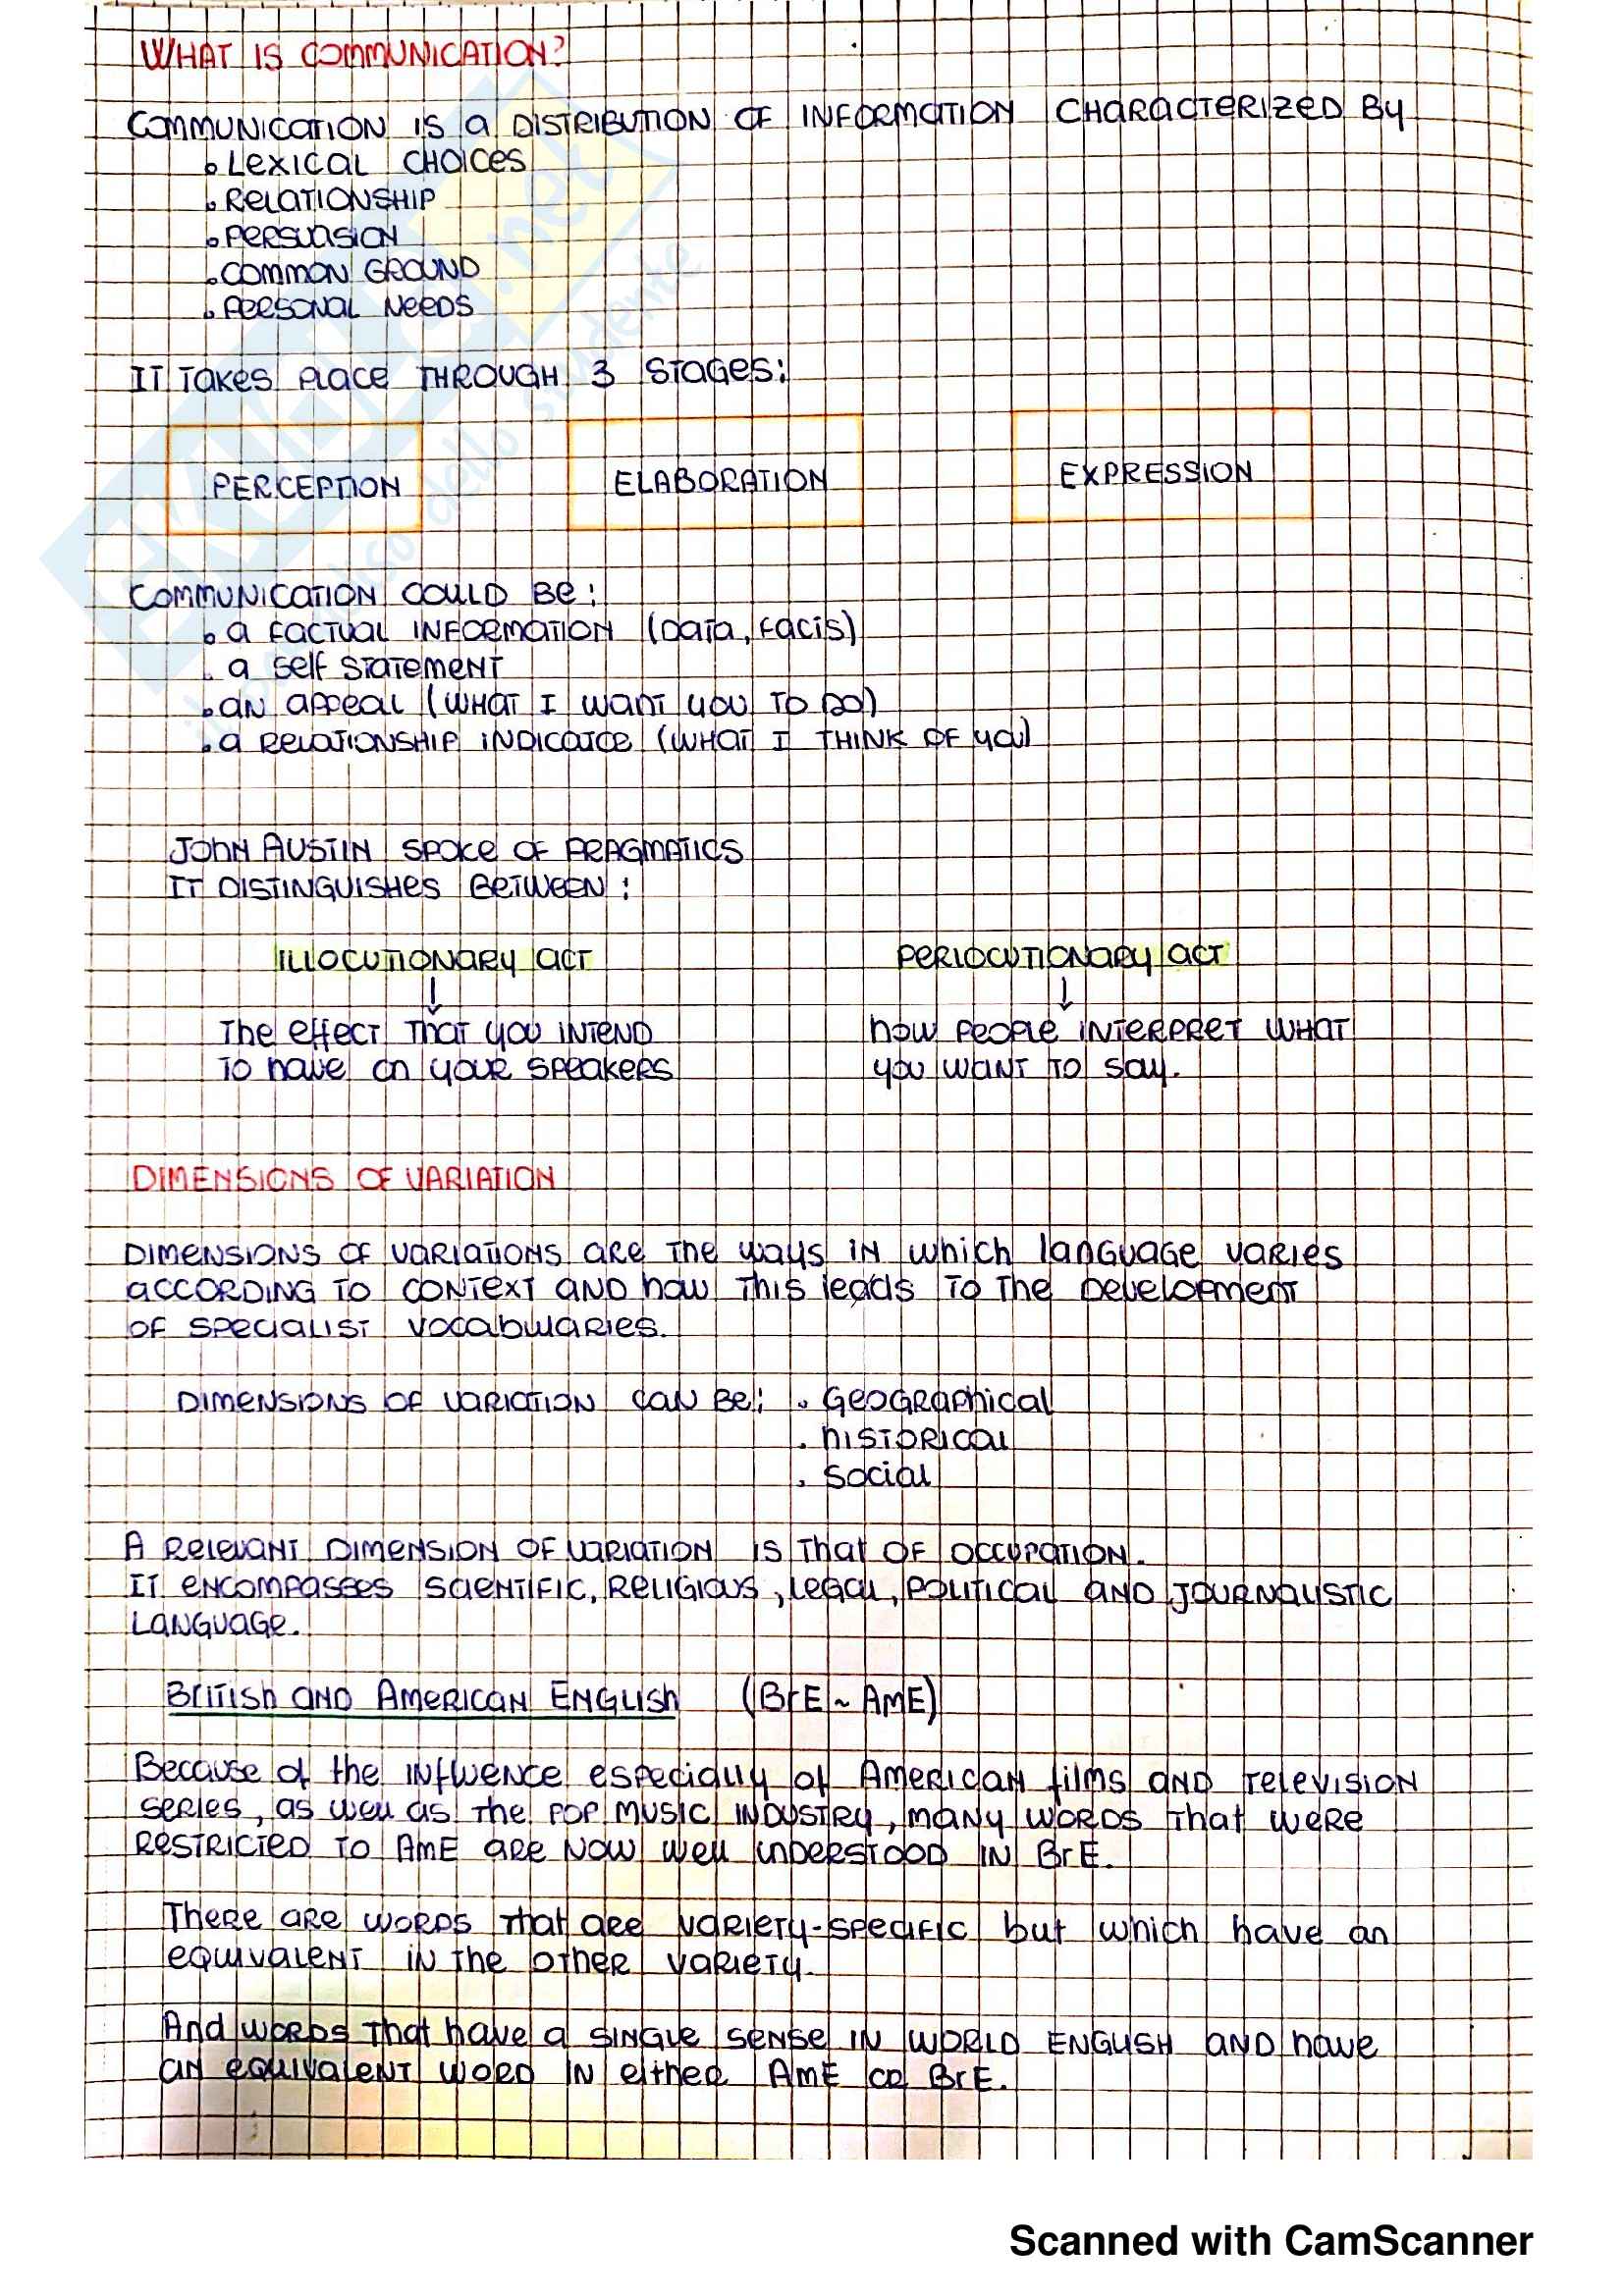 WHAT IS COMMUNICATION?
COMMUNICATION IS A DISTRIBUTION OF INFORMATION CHARACTERIZED BY
• LEXICAL CHOICES
• RELATIONSHIP
• PERSUASION
• COMMON GROUND
• PERSONAL NEEDS
IT TAKES PLACE THROUGH 3 STAGES:
PERCEPTION ELABORATION EXPRESSION
COMMUNICATION COULD BE:
• A FACTUAL INFORMATION (DATA, FACTS)
• A SELF STATEMENT
• AN APPEAL (WHAT I WANT YOU TO DO)
• A RELATIONSHIP INDICATOR (WHAT I THINK OF YOU)
JOHN AUSTIN SPOKE OF PRAGMATICS
IT DISTINGUISHES BETWEEN:
ILLOCUTIONARY ACT PERLOCUTIONARY ACT
↓ ↓
THE EFFECT THAT YOU INTEND HOW PEOPLE INTERPRET WHAT
TO HAVE ON YOUR SPEAKERS YOU WANT TO SAY.
DIMENSIONS OF VARIATION
DIMENSIONS OF VARIATIONS ARE THE WAYS IN WHICH LANGUAGE VARIES
ACCORDING TO CONTEXT AND HOW THIS LEADS TO THE DEVELOPMENT
OF SPECIALIST VOCABULARIES.
DIMENSIONS OF VARIATION CAN BE: • GEOGRAPHICAL
• HISTORICAL
• SOCIAL
A RELEVANT DIMENSION OF VARIATION IS THAT OF OCCUPATION.
IT ENCOMPASSES SCIENTIFIC, RELIGIOUS, LEGAL, POLITICAL AND JOURNALISTIC
LANGUAGE.
BRITISH AND AMERICAN ENGLISH (BrE ~ AmE)
BECAUSE OF THE INFLUENCE ESPECIALLY OF AMERICAN FILMS AND TELEVISION
SERIES, AS WELL AS THE POP MUSIC INDUSTRY, MANY WORDS THAT WERE
RESTRICTED TO AmE ARE NOW WELL UNDERSTOOD IN BrE.
THERE ARE WORDS THAT ARE VARIETY-SPECIFIC BUT WHICH HAVE AN
EQUIVALENT IN THE OTHER VARIETY.
AND WORDS THAT HAVE A SINGLE SENSE IN WORLD ENGLISH AND HAVE
AN EQUIVALENT WORD IN EITHER AmE OR BrE.
Scanned with CamScanner